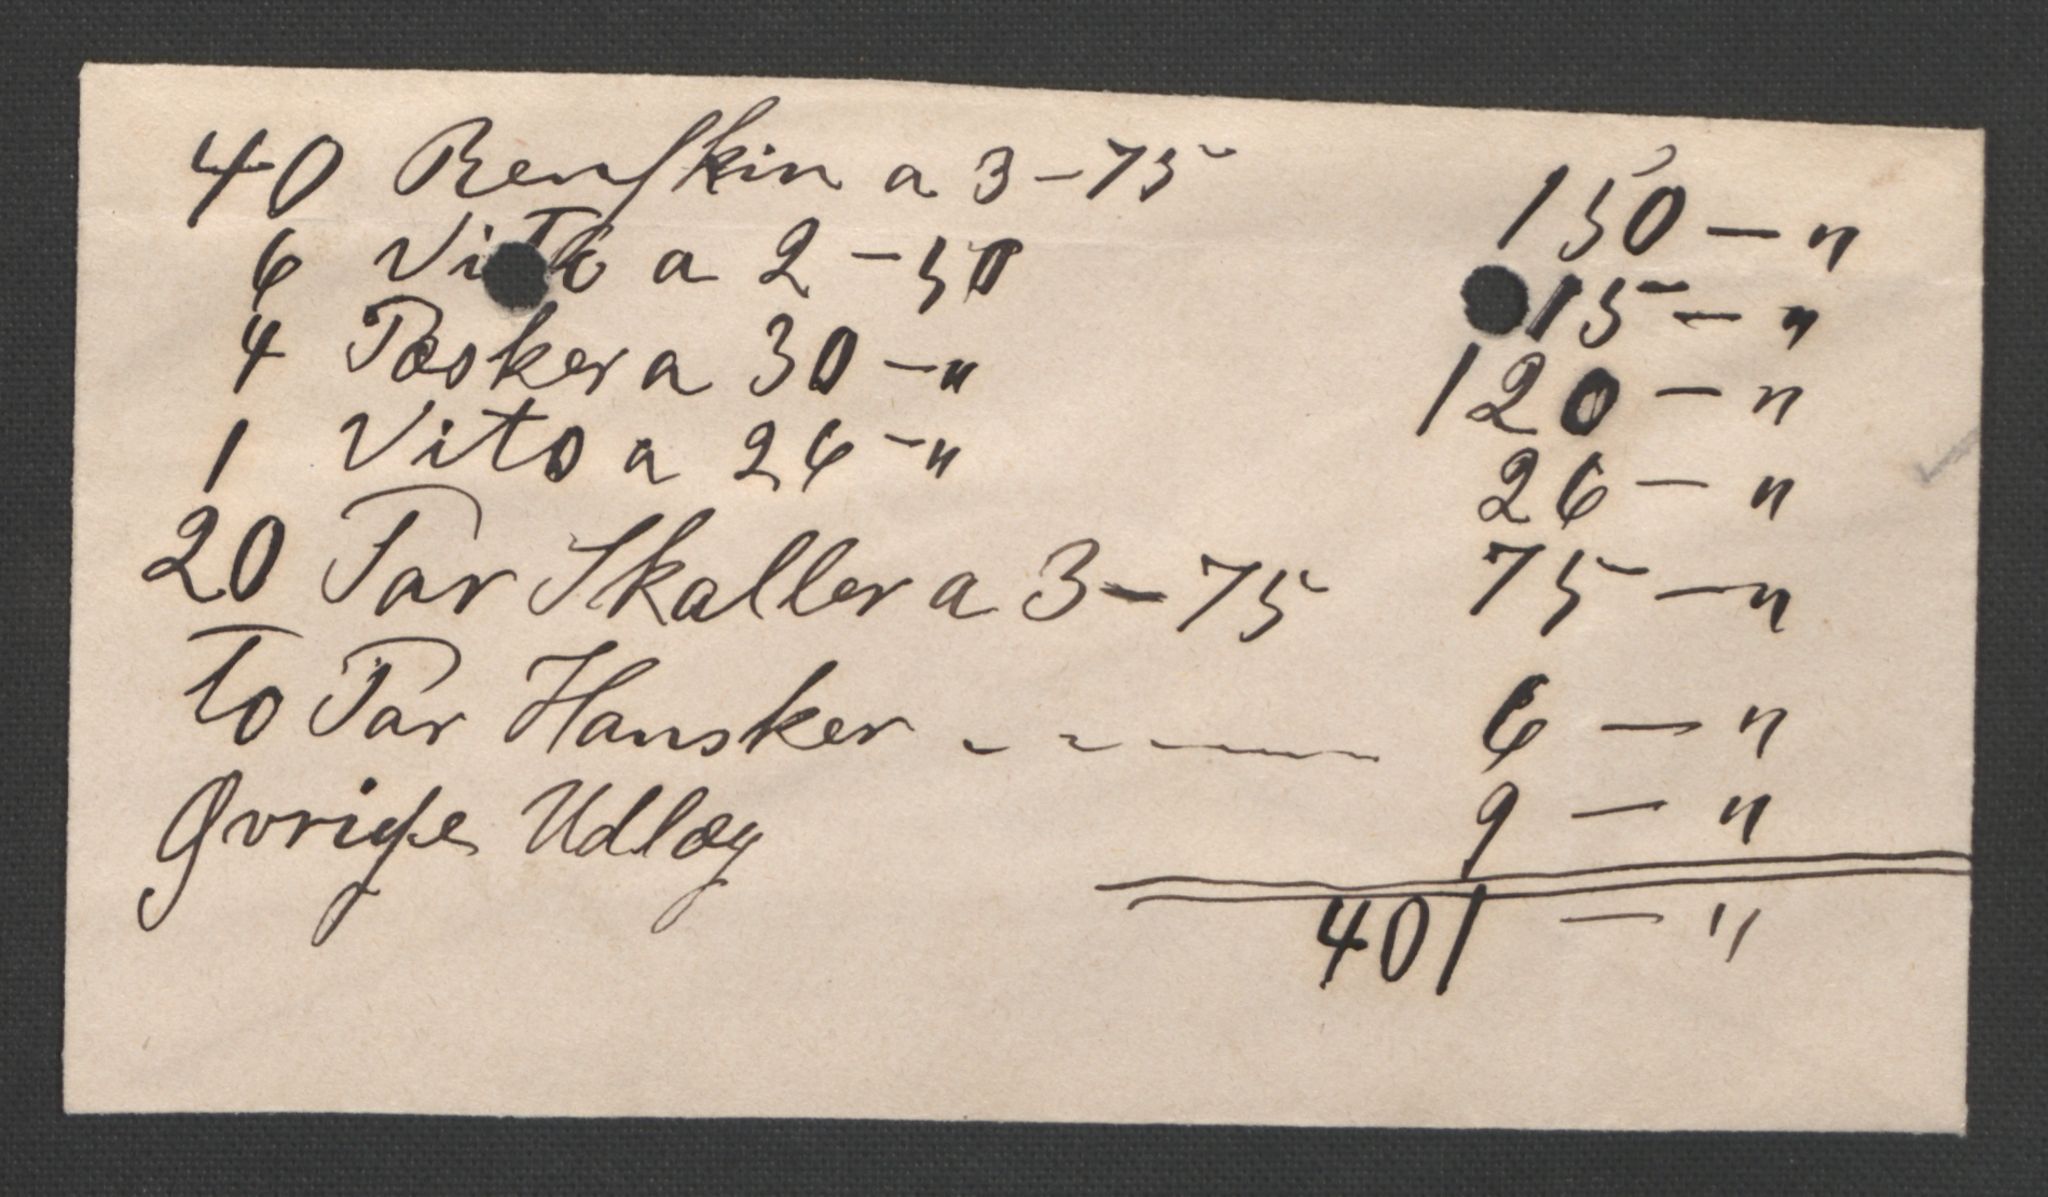 40 Renskin a 3-75 150 - "
6 Vito a 2-50 15 - "
4 Pæsker a 30 - " 120 - "
1 Vito a 26 - " 26 - "
20 Par Skaller a 3-75 75 - "
To Par Hansker - - - 6 - "
Øvrige Udlæg 9 - "
401 - "